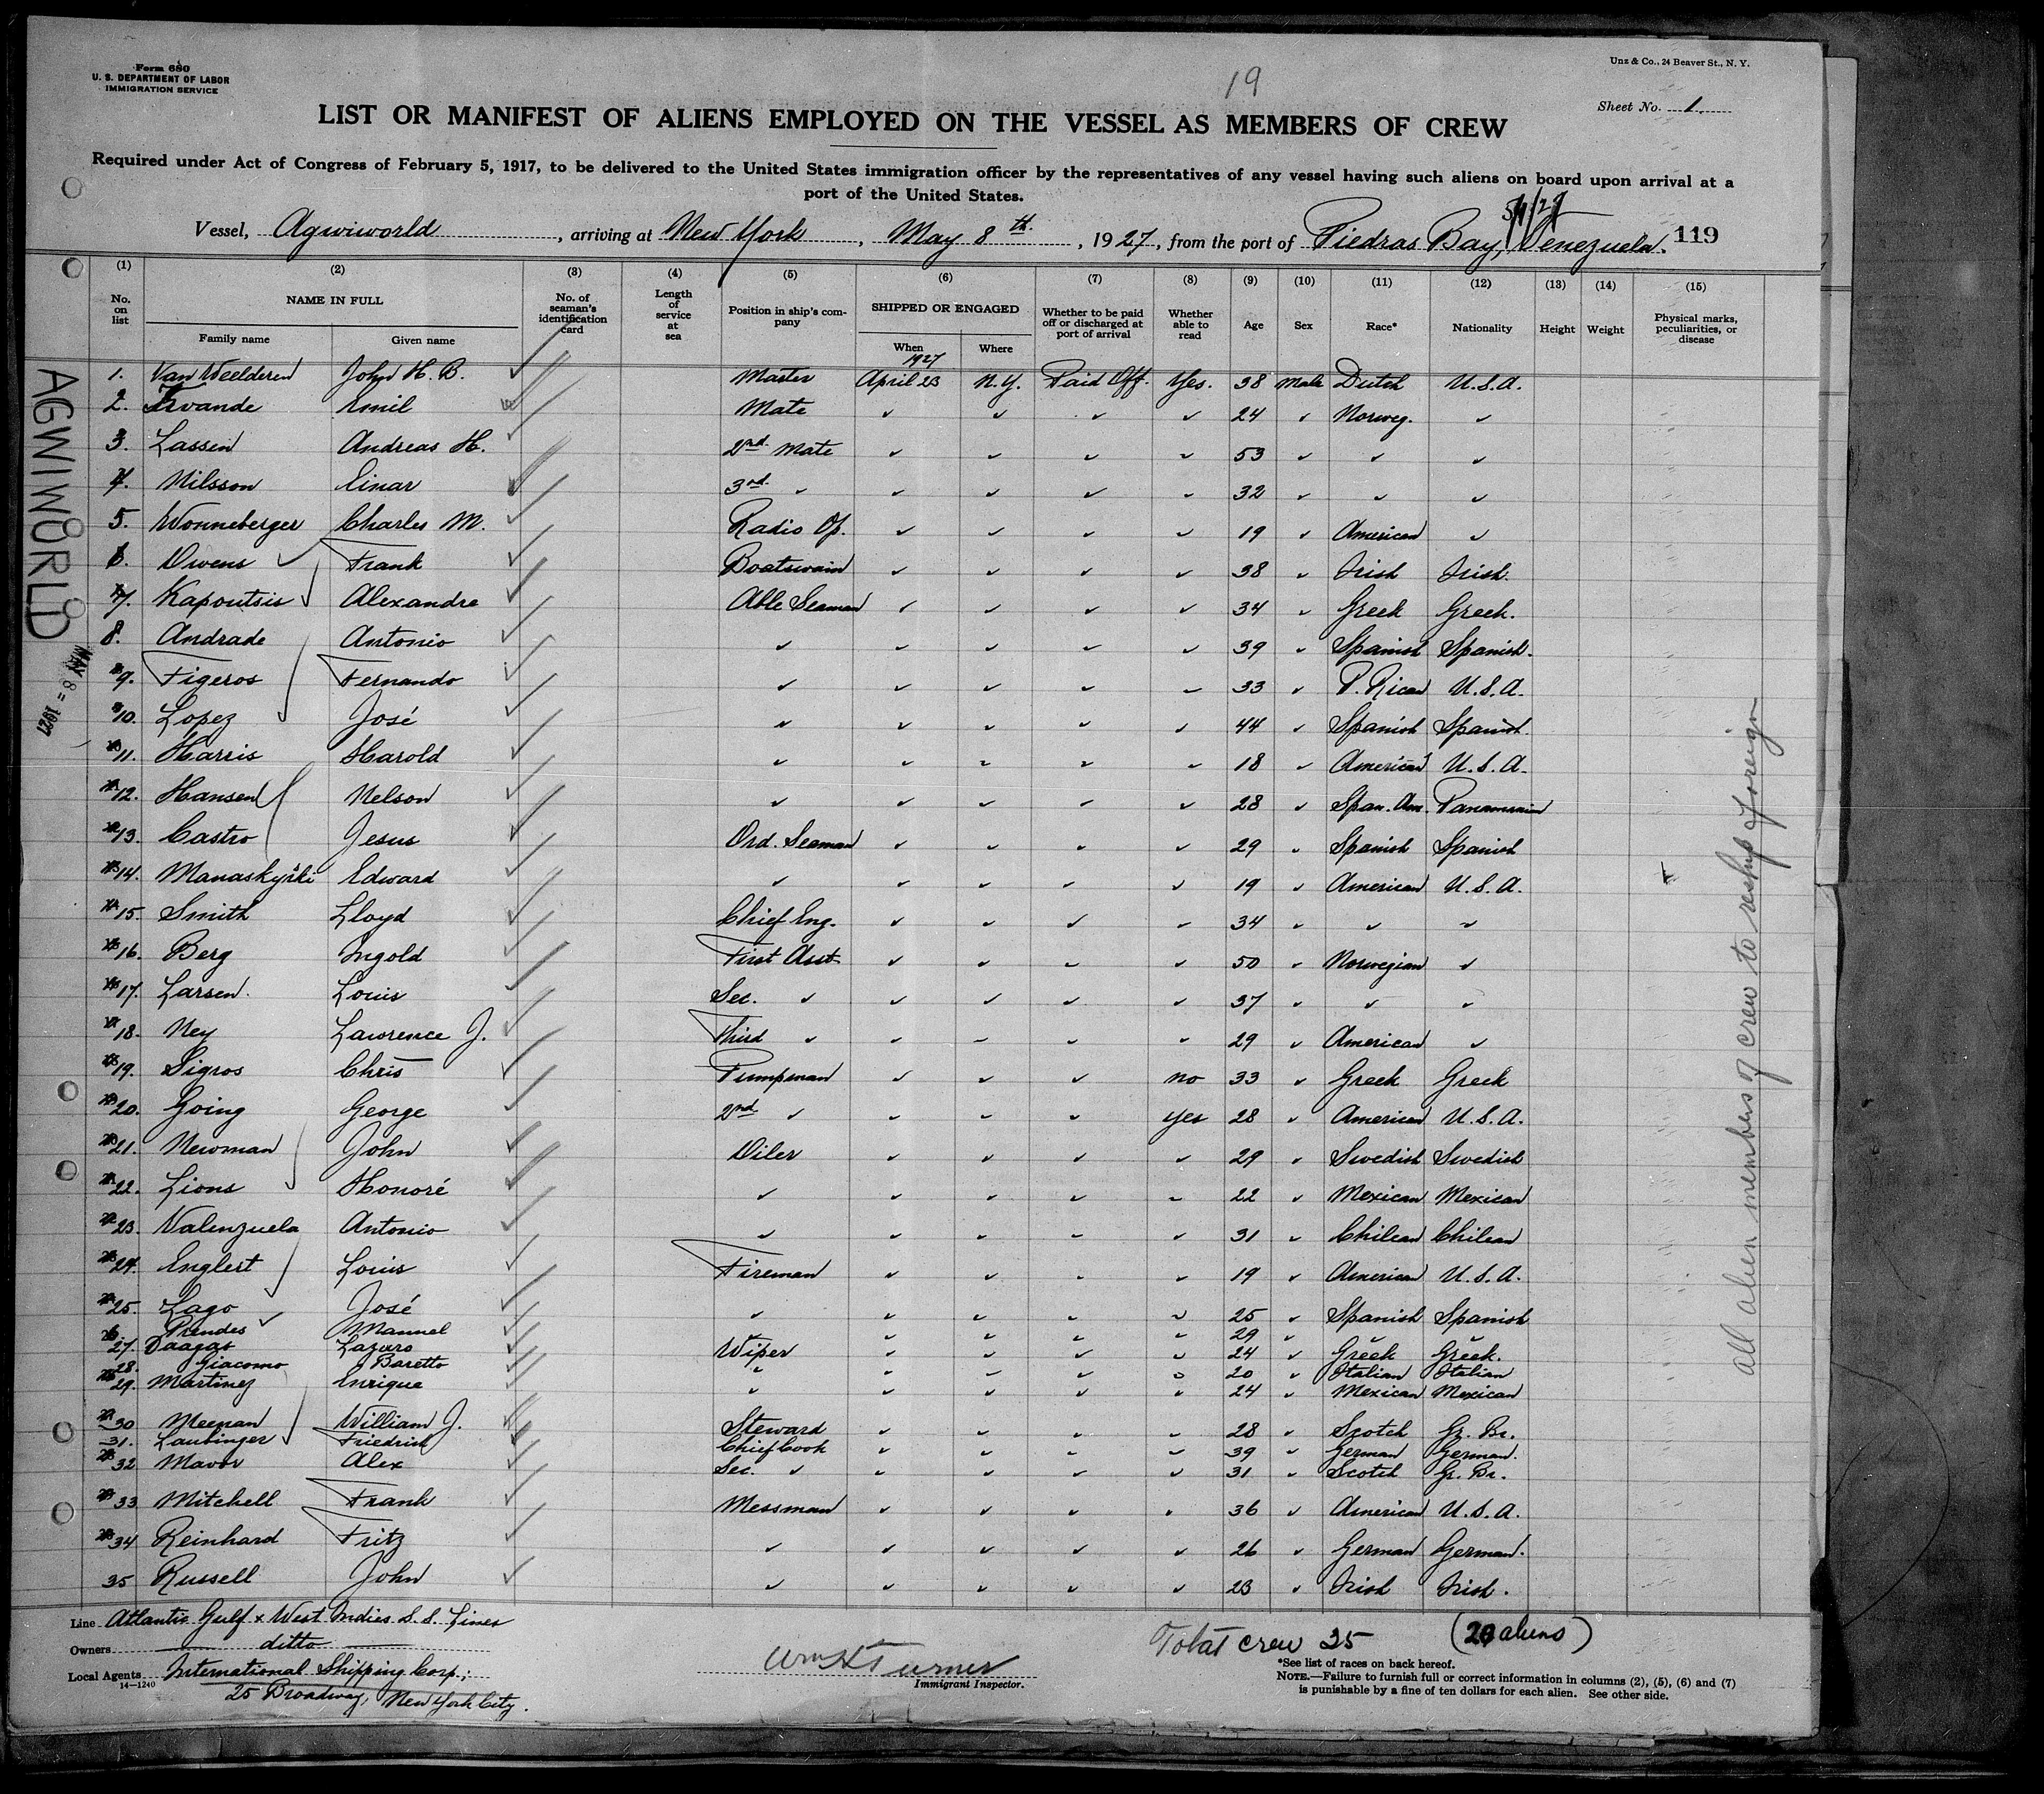 Form 680
U. S. DEPARTMENT OF LABOR
IMMIGRATION SERVICE
19
Unz & Co., 24 Beaver St., N. Y.
Sheet No. 1.
LIST OR MANIFEST OF ALIENS EMPLOYED ON THE VESSEL AS MEMBERS OF CREW
Required under Act of Congress of February 5, 1917, to be delivered to the United States immigration officer by the representatives of any vessel having such aliens on board upon arrival at a
port of the United States.
Vessel, Agwiworld, arriving at New York, May 8th, 1927, from the port of Piedras Bay, Venezuela. 119
(1) (2) (3) (4) (5) (6) (7) (8) (9) (10) (11) (12) (13) (14) (15)
No. on list NAME IN FULL Family name Given name No. of seaman's identification card Length of service at sea Position in ship's company SHIPPED OR ENGAGED When Where Whether to be paid off or discharged at port of arrival Whether able to read Age Sex Race* Nationality Height Weight Physical marks, peculiarities, or disease
1927
1. Van Weelderen John H. B. Master April 23 N.Y. Paid Off. Yes. 38 Male Dutch U.S.A.
2. Emil Mate 24 Norweg.
3. Lassen Andreas H. 2nd Mate 53
4. Nilsson Einar 3rd 32
5. Wonneberger Charles M. Radio Op. 19 American
6. Owens Frank Boatswain 38 Irish Irish.
7. Kapoutsis Alexandre Able Seaman 34 Greek Greek.
8. Andrade Antonio 39 Spanish Spanish.
9. Figeros Fernando 33 P. Rican U.S.A.
10. Lopez José 44 Spanish Spanish.
11. Harris Harold 18 American U.S.A.
12. Hansen Nelson 28 Span. Am.
13. Castro Jesus Ord. Seaman 29 Spanish Spanish
14. Manaskyrski Edward 19 American U.S.A.
15. Smith Lloyd Chief Eng. 34
16. Berg Ingold First Asst 50 Norwegian
17. Larsen. Louis Sec. 37
18. Ney Lawrence J. Third 29 American
19. Sigros Chris Pumpman no 33 Greek Greek
20. Going George 2nd Yes 28 American U.S.A.
21. Newman John Oiler 29 Swedish Swedish
22. Lions Honoré 22 Mexican Mexican
23. Valenzuela Antonio 31 Chilean Chilean
24. Englert Louis Fireman 19 American U.S.A.
25. Lago José 25 Spanish Spanish
26. Prendes Manuel 29
27. Daagas Lazaro Wiper 24 Greek Greek.
28. Giacomo Baretto 20 Italian Italian
29. Martinez Enrique 24 Mexican Mexican
30 Meenan William J. Steward 28 Scotch Gr. Br.
31. Laubinger Friedrich Chief Cook 39 German German.
32 Mavor Alex Sec. 31 Scotch Gr. Br.
33 Mitchell Frank Messman 36 American U.S.A.
34 Reinhard Fritz 26 German German.
35 Russell John 23 Irish Irish.
AGWIWORLD
MAY 8 = 1927
all alien members of crew to reship foreign
Line Atlantic Gulf & West Indies S.S. Lines
Owners ditto
Local Agents International Shipping Corp.;
14—1240
25 Broadway, New York City.
Wm Turner
Immigrant Inspector.
Total crew 35 (20 aliens)
*See list of races on back hereof.
NOTE.—Failure to furnish full or correct information in columns (2), (5), (6) and (7)
is punishable by a fine of ten dollars for each alien. See other side.